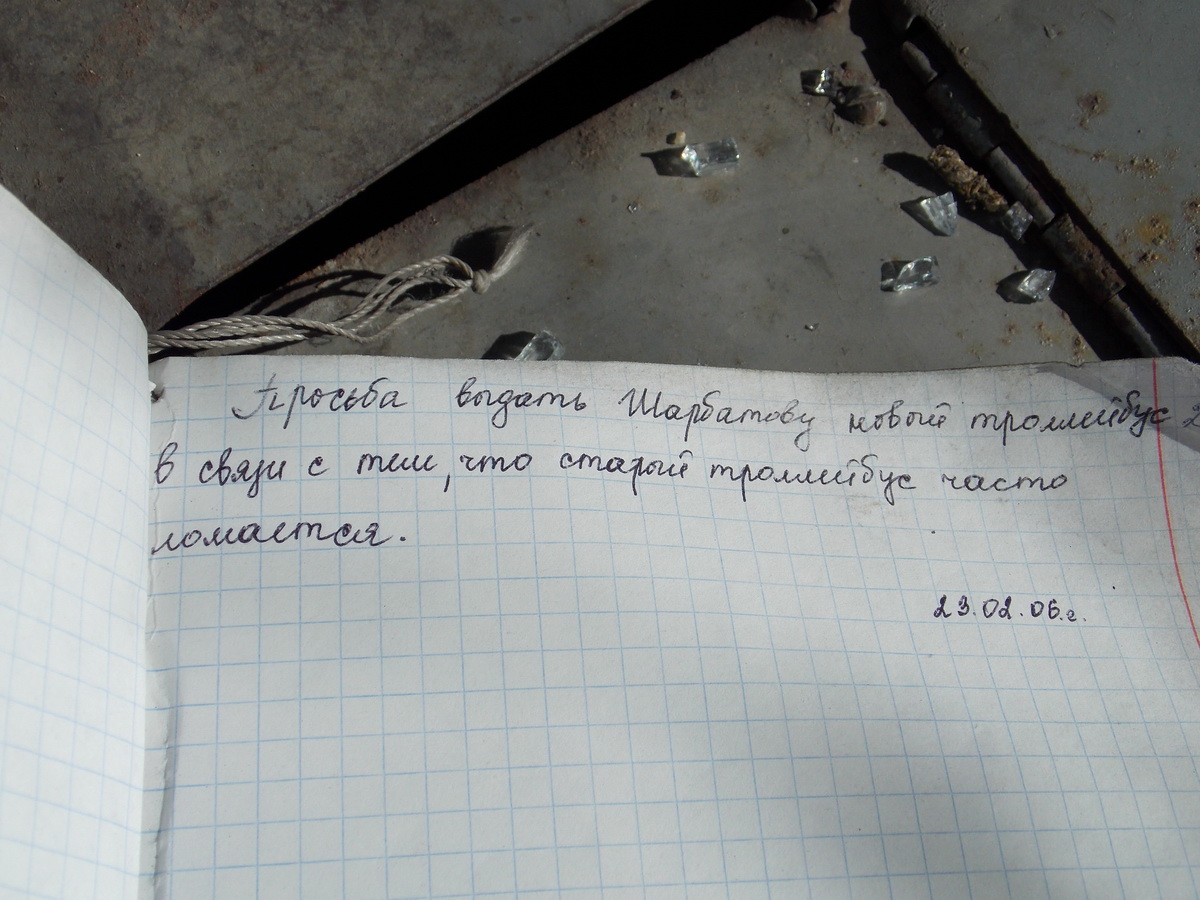 Просьба выдать Шарбатову новый троллейбус
в связи с тем, что старый троллейбус часто
ломается.
23.02.06.г.